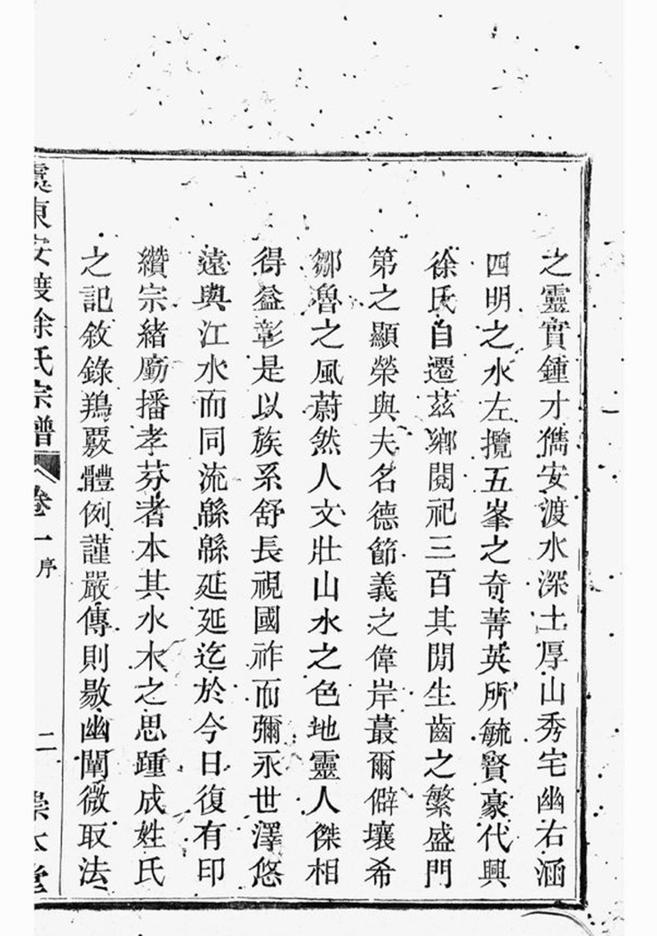 之靈實鍾才儁安渡水深土厚山秀宅幽右涵
四明之水左攬五峯之奇菁英所毓賢豪代興
徐氏自遷茲鄉閱祀三百其閒生齒之繁盛門
第之顯榮與夫名德節義之偉岸蕞爾僻壤希
鄒魯之風蔚然人文壯山水之色地靈人傑相
得益彰是以族系舒長視國祚而彌永世澤悠
遠與江水而同流緜緜延延迄於今日復有印
纘宗緒勵播孝芬者本其水木之思踵成姓氏
之記敘錄鴹覈體例謹嚴傳則敭幽闡微取法
虞東安渡徐氏宗譜 卷一 序 二 崇本堂